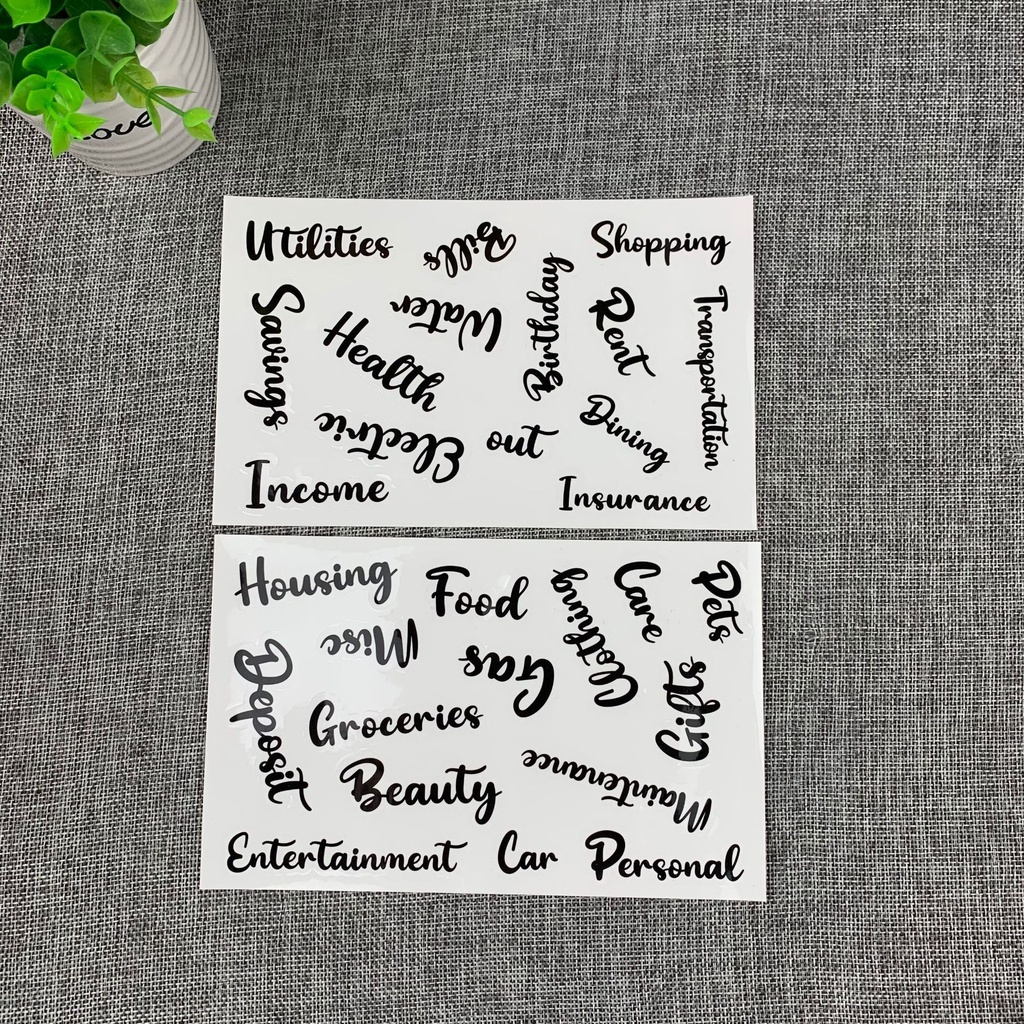 Love
Utilities
Bills
Shopping
Savings
Health
Water
Birthday
Rent
Transportation
Electric
out
Dining
Income
Insurance
Housing
Food
Clothing
Care
Pets
Misc
Gas
Deposit
Groceries
Gifts
Beauty
Maintenance
Entertainment
Car
Personal